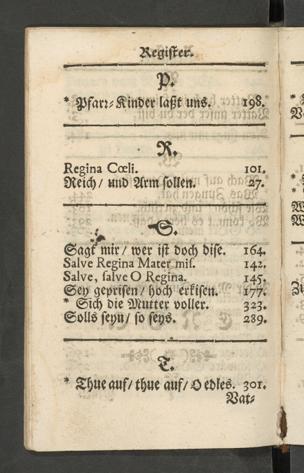 Register.
P.
* Pfarr-Kinder laßt uns. 198.
R.
Regina Cœli. 101.
Reich / und Arm sollen. 27.
S.
Sagt mir / wer ist doch dise. 164.
Salve Regina Mater mis. 142.
Salve, salve O Regina. 145.
Sey geprisen / hoch erkisen. 177.
* Sich die Mutter voller. 323.
Solls seyn / so seys. 289.
T.
* Thue auf / thue auf / O edles. 301.
Vat-